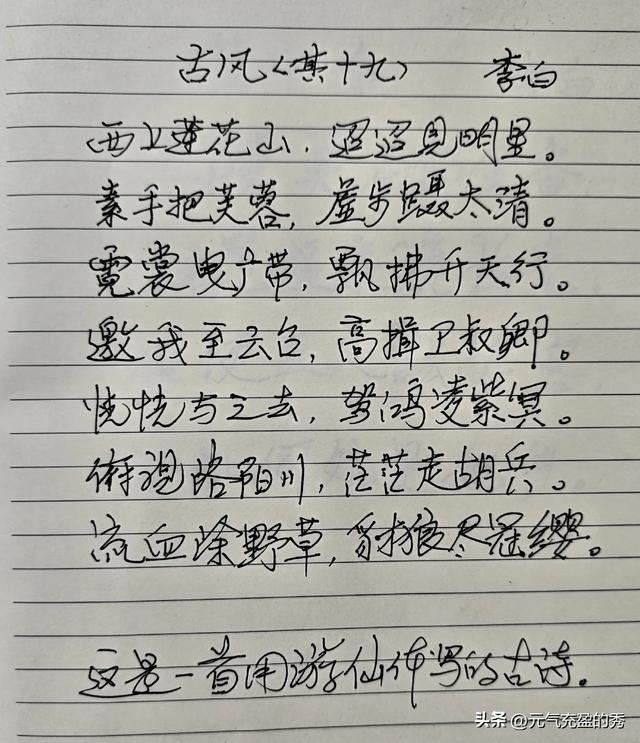 古风（其十九） 李白
西上莲花山，迢迢见明星。
素手把芙蓉，虚步蹑太清。
霓裳曳广带，飘拂升天行。
邀我至云台，高揖卫叔卿。
恍恍与之去，驾鸿凌紫冥。
俯视洛阳川，茫茫走胡兵。
流血涂野草，豺狼尽冠缨。
这是一首用游仙体写的古诗。
头条 @元气充盈的秀